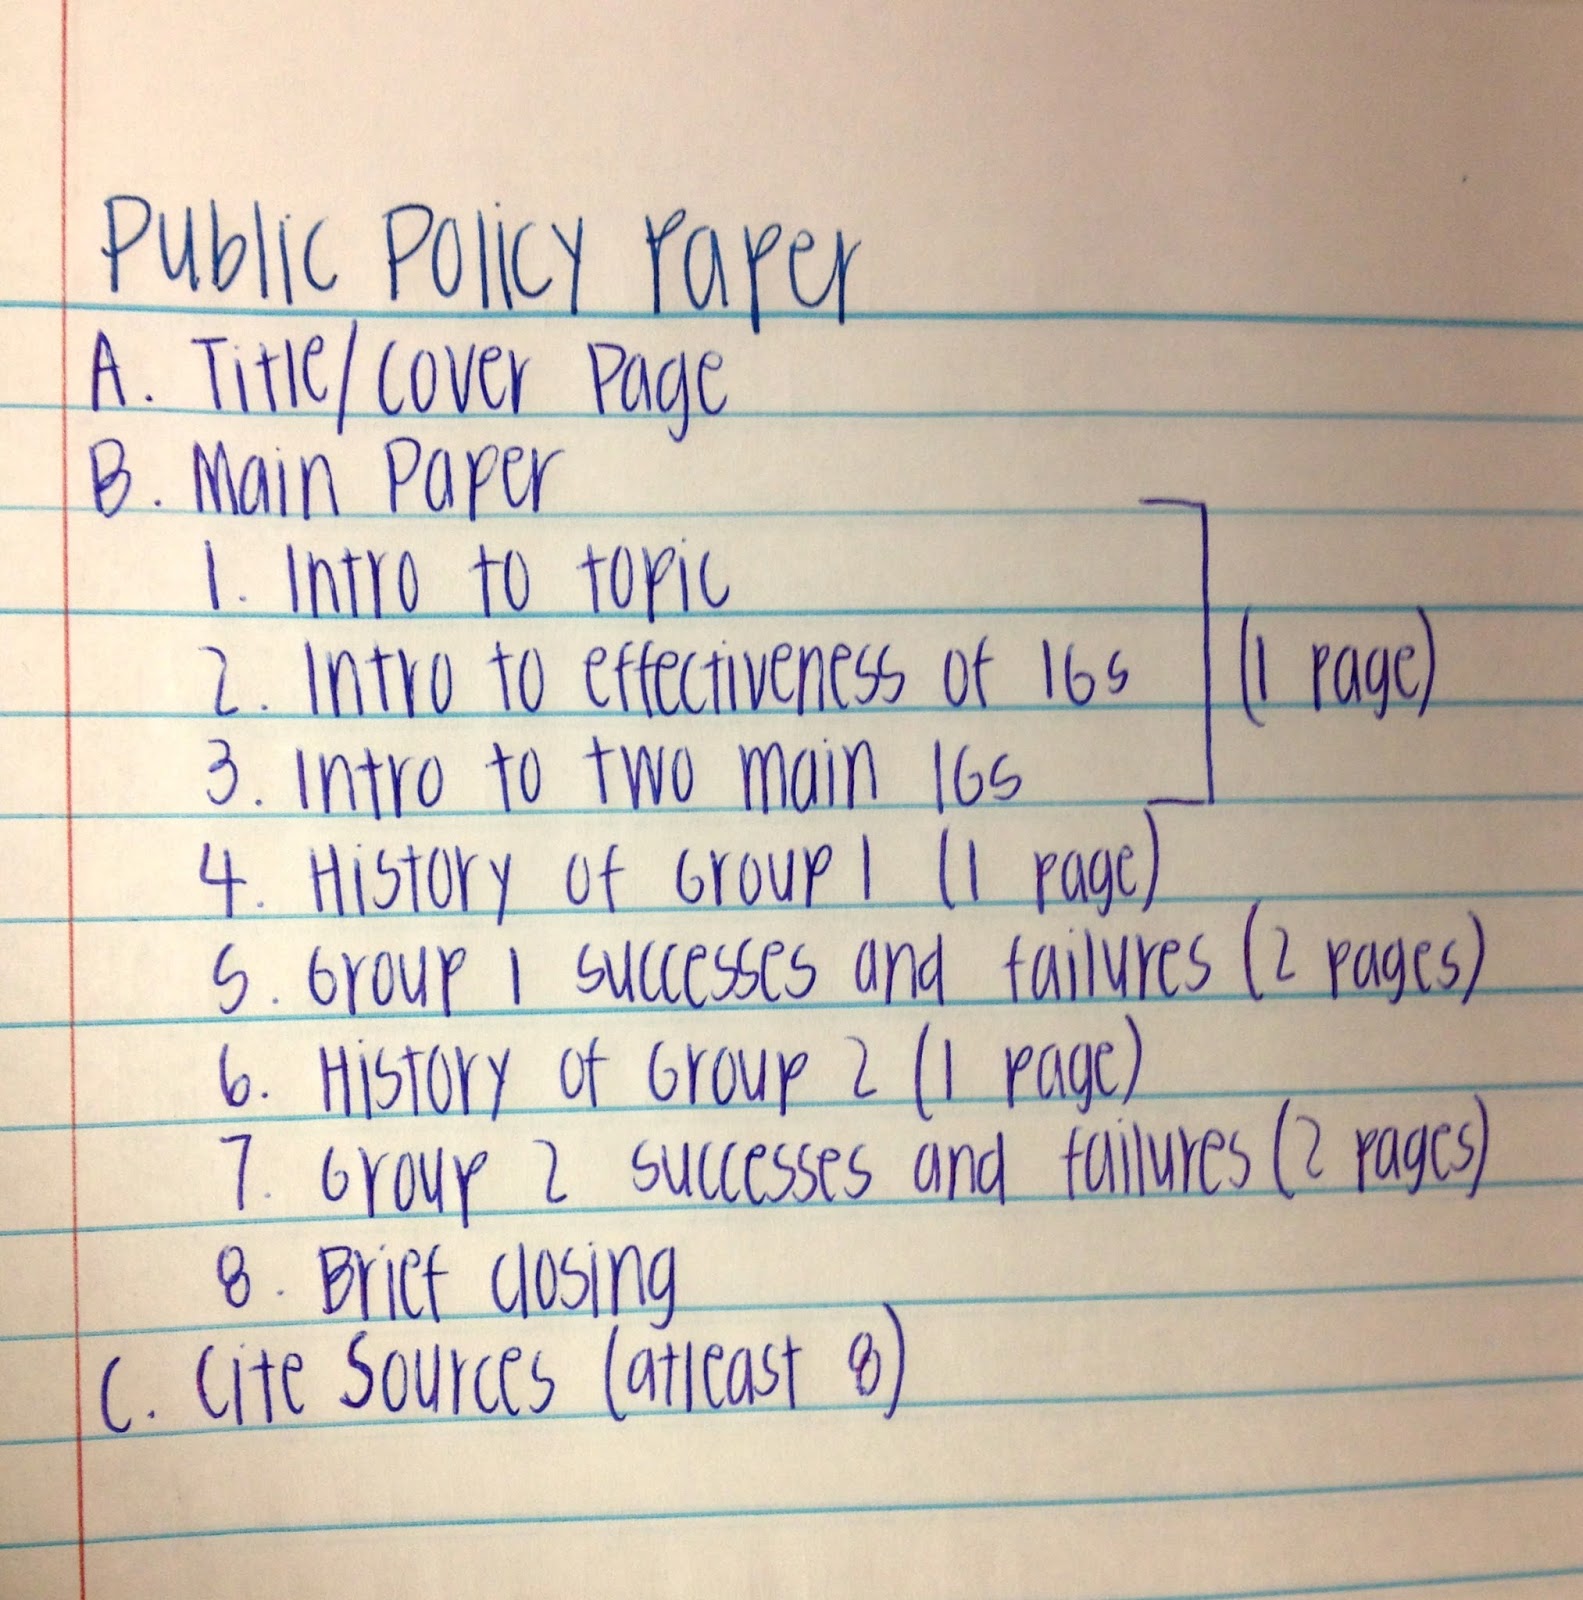 Public Policy Paper
A. Title/Cover Page
B. Main Paper
1. Intro to topic
2. Intro to effectiveness of IGs (1 page)
3. Intro to two main IGs
4. History of Group 1 (1 page)
5. Group 1 successes and failures (2 pages)
6. History of Group 2 (1 page)
7. Group 2 successes and failures (2 pages)
8. Brief closing
C. Cite Sources (atleast 8)